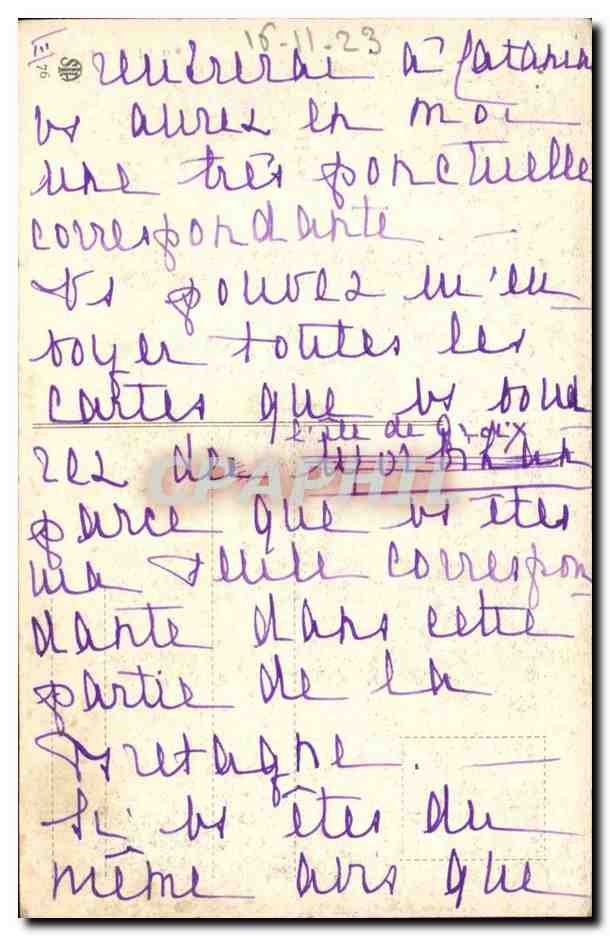 16-11-23
III
76
rentrerai à Catania
vs aurez en moi
une très ponctuelle
correspondante. —
Vs pouvez m'en
voyer toutes les
cartes que vs vou
l'île de
rez de
parce que vs êtes
ma seule correspon
dante dans cette
partie de la
Bretagne. —
Si vs êtes du
même avis que
CPAPHIL